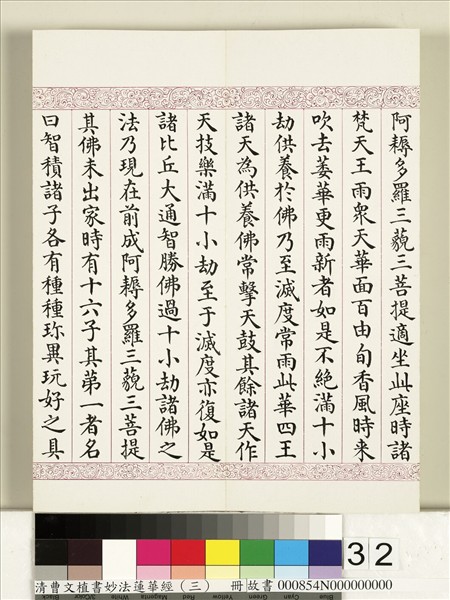 阿耨多羅三藐三菩提適坐此座時諸
梵天王雨眾天華面百由旬香風時来
吹去萎華更雨新者如是不絕滿十小
劫供養於佛乃至滅度常雨此華四王
諸天為供養佛常擊天鼓其餘諸天作
天技樂滿十小劫至于滅度亦復如是
諸比丘大通智勝佛過十小劫諸佛之
法乃現在前成阿耨多羅三藐三菩提
其佛未出家時有十六子其第一者名
曰智積諸子各有種種珎異玩好之具
32
清曹文植書妙法蓮華經（三） 冊 故書 000854N000000000
Black 3/Color White Magenta Red Yellow Green Cyan Blue